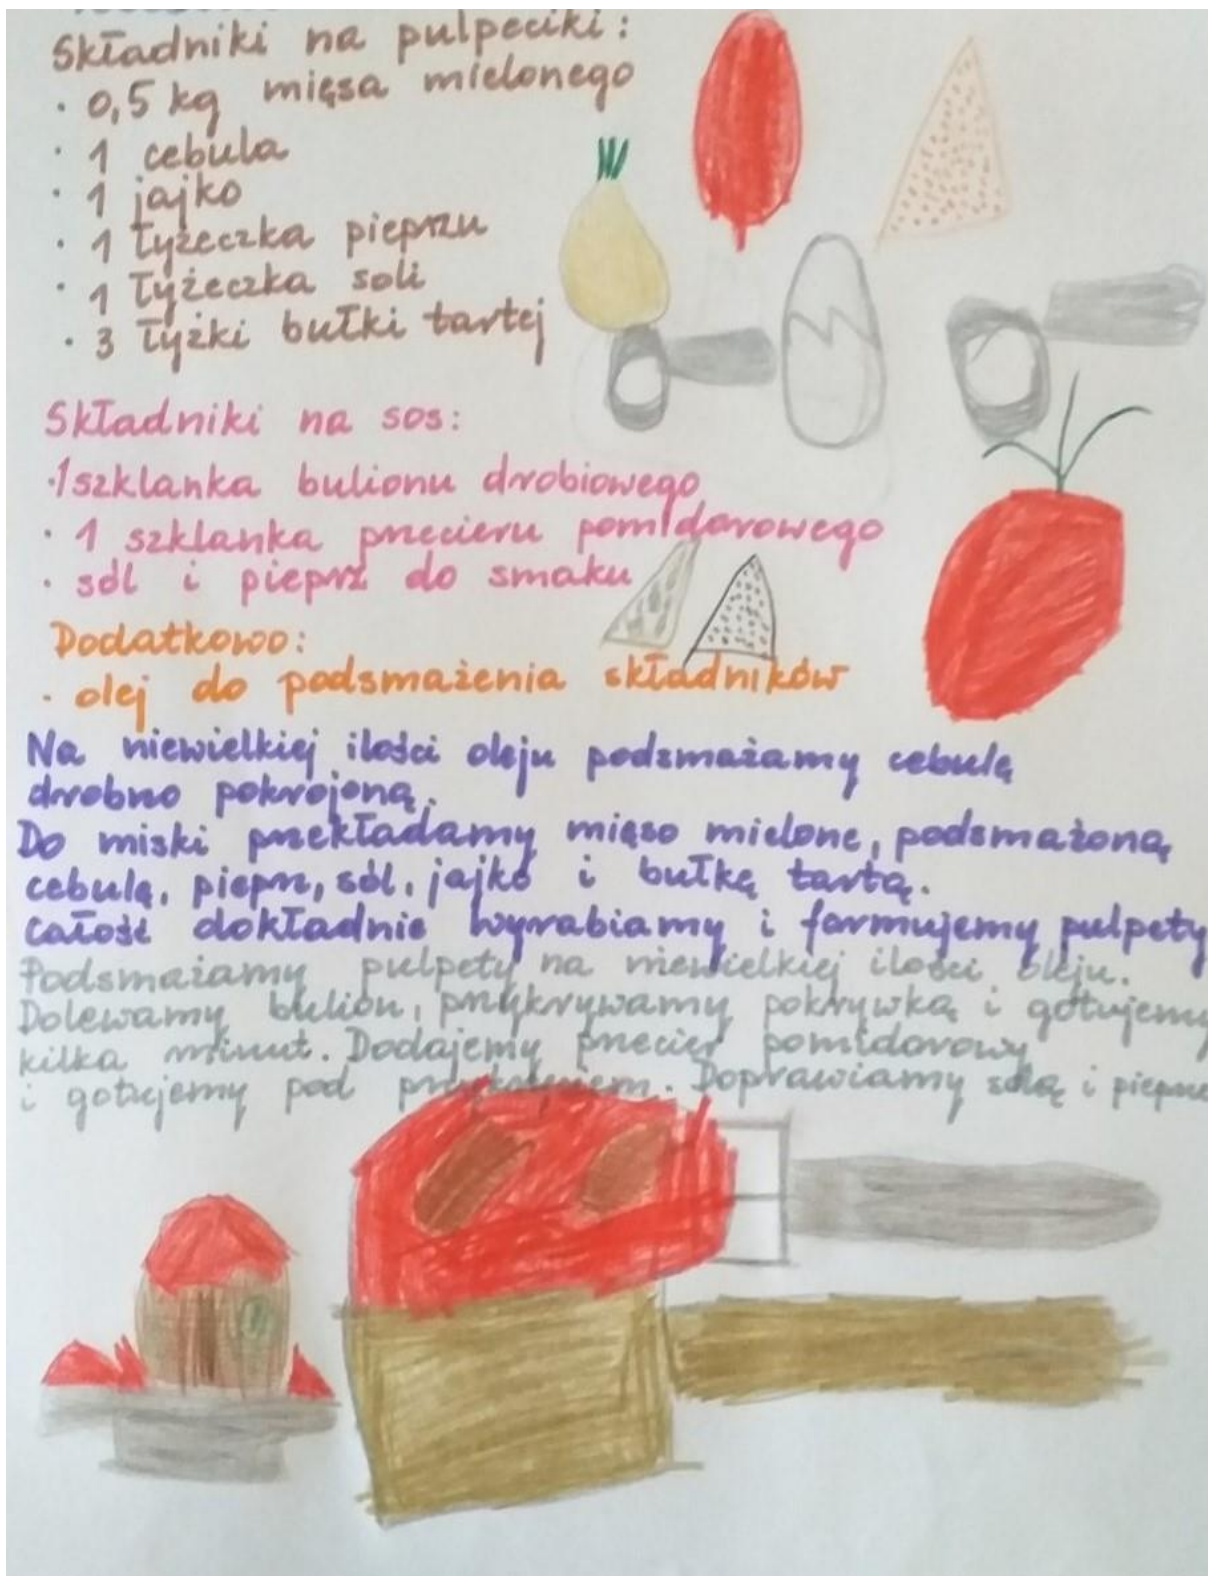 Składniki na pulpeciki:
· 0,5 kg mięsa mielonego
· 1 cebula
· 1 jajko
· 1 łyżeczka pieprzu
· 1 łyżeczka soli
· 3 łyżki bułki tartej
Składniki na sos:
· 1 szklanka bulionu drobiowego
· 1 szklanka przecieru pomidorowego
· sól i pieprz do smaku
Dodatkowo:
· olej do podsmażenia składników
Na niewielkiej ilości oleju podsmażamy cebulę
drobno pokrojoną.
Do miski przekładamy mięso mielone, podsmażoną
cebulę, pieprz, sól, jajko i bułkę tartą.
Całość dokładnie wyrabiamy i formujemy pulpety
Podsmażamy pulpety na niewielkiej ilości oleju.
Dolewamy bulion, przykrywamy pokrywką i gotujemy
kilka minut. Dodajemy przecier pomidorowy
i gotujemy pod przykryciem. Doprawiamy solą i